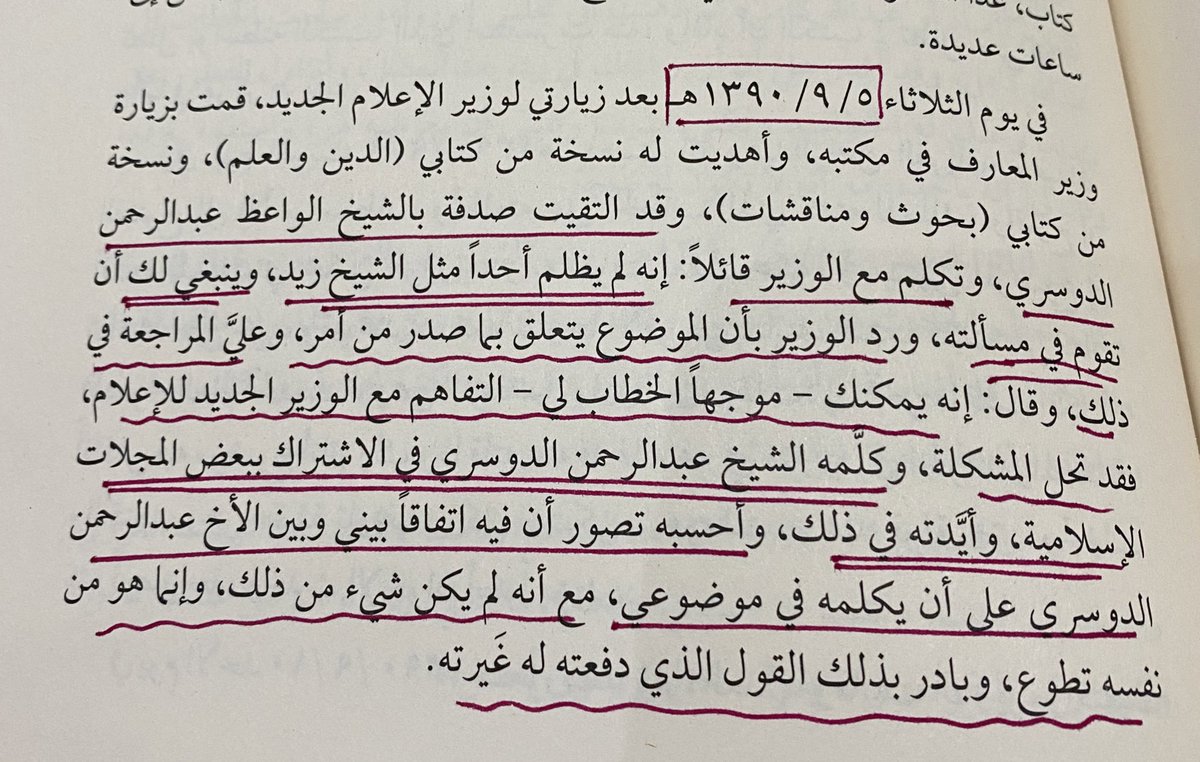 كتاب،
ساعات عديدة.
في يوم الثلاثاء ٥/ ٩/ ١٣٩٠هـ بعد زيارتي لوزير الإعلام الجديد، قمت بزيارة
وزير المعارف في مكتبه، وأهديت له نسخة من كتابي (الدين والعلم)، ونسخة
من كتابي (بحوث ومناقشات)، وقد التقيت صدفة بالشيخ الواعظ عبدالرحمن
الدوسري، وتكلم مع الوزير قائلاً: إنه لم يظلم أحداً مثل الشيخ زيد، وينبغي لك أن
تقوم في مسألته، ورد الوزير بأن الموضوع يتعلق بما صدر من أمر، وعليَّ المراجعة في
ذلك، وقال: إنه يمكنك – موجهاً الخطاب لي – التفاهم مع الوزير الجديد للإعلام،
فقد تحل المشكلة، وكلَّمه الشيخ عبدالرحمن الدوسري في الاشتراك ببعض المجلات
الإسلامية، وأيَّدته في ذلك، وأحسبه تصور أن فيه اتفاقاً بيني وبين الأخ عبدالرحمن
الدوسري على أن يكلمه في موضوعي، مع أنه لم يكن شيء من ذلك، وإنما هو من
نفسه تطوع، وبادر بذلك القول الذي دفعته له غَيرته.